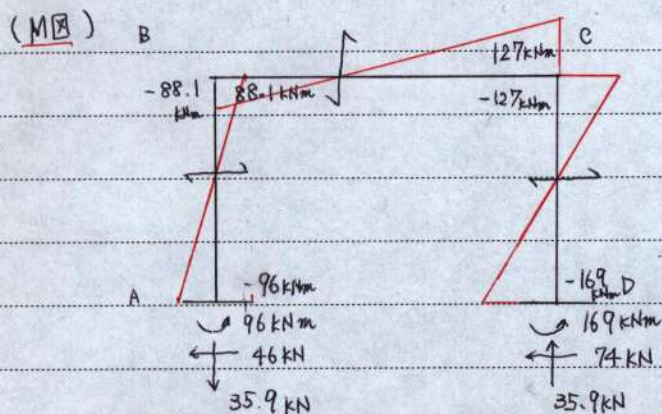 (M図)
B
C
127kNm
-88.1
kNm
88.1kNm
-127kNm
A
-96kNm
-169
kNm D
96kNm
169kNm
46kN
74kN
35.9kN
35.9kN